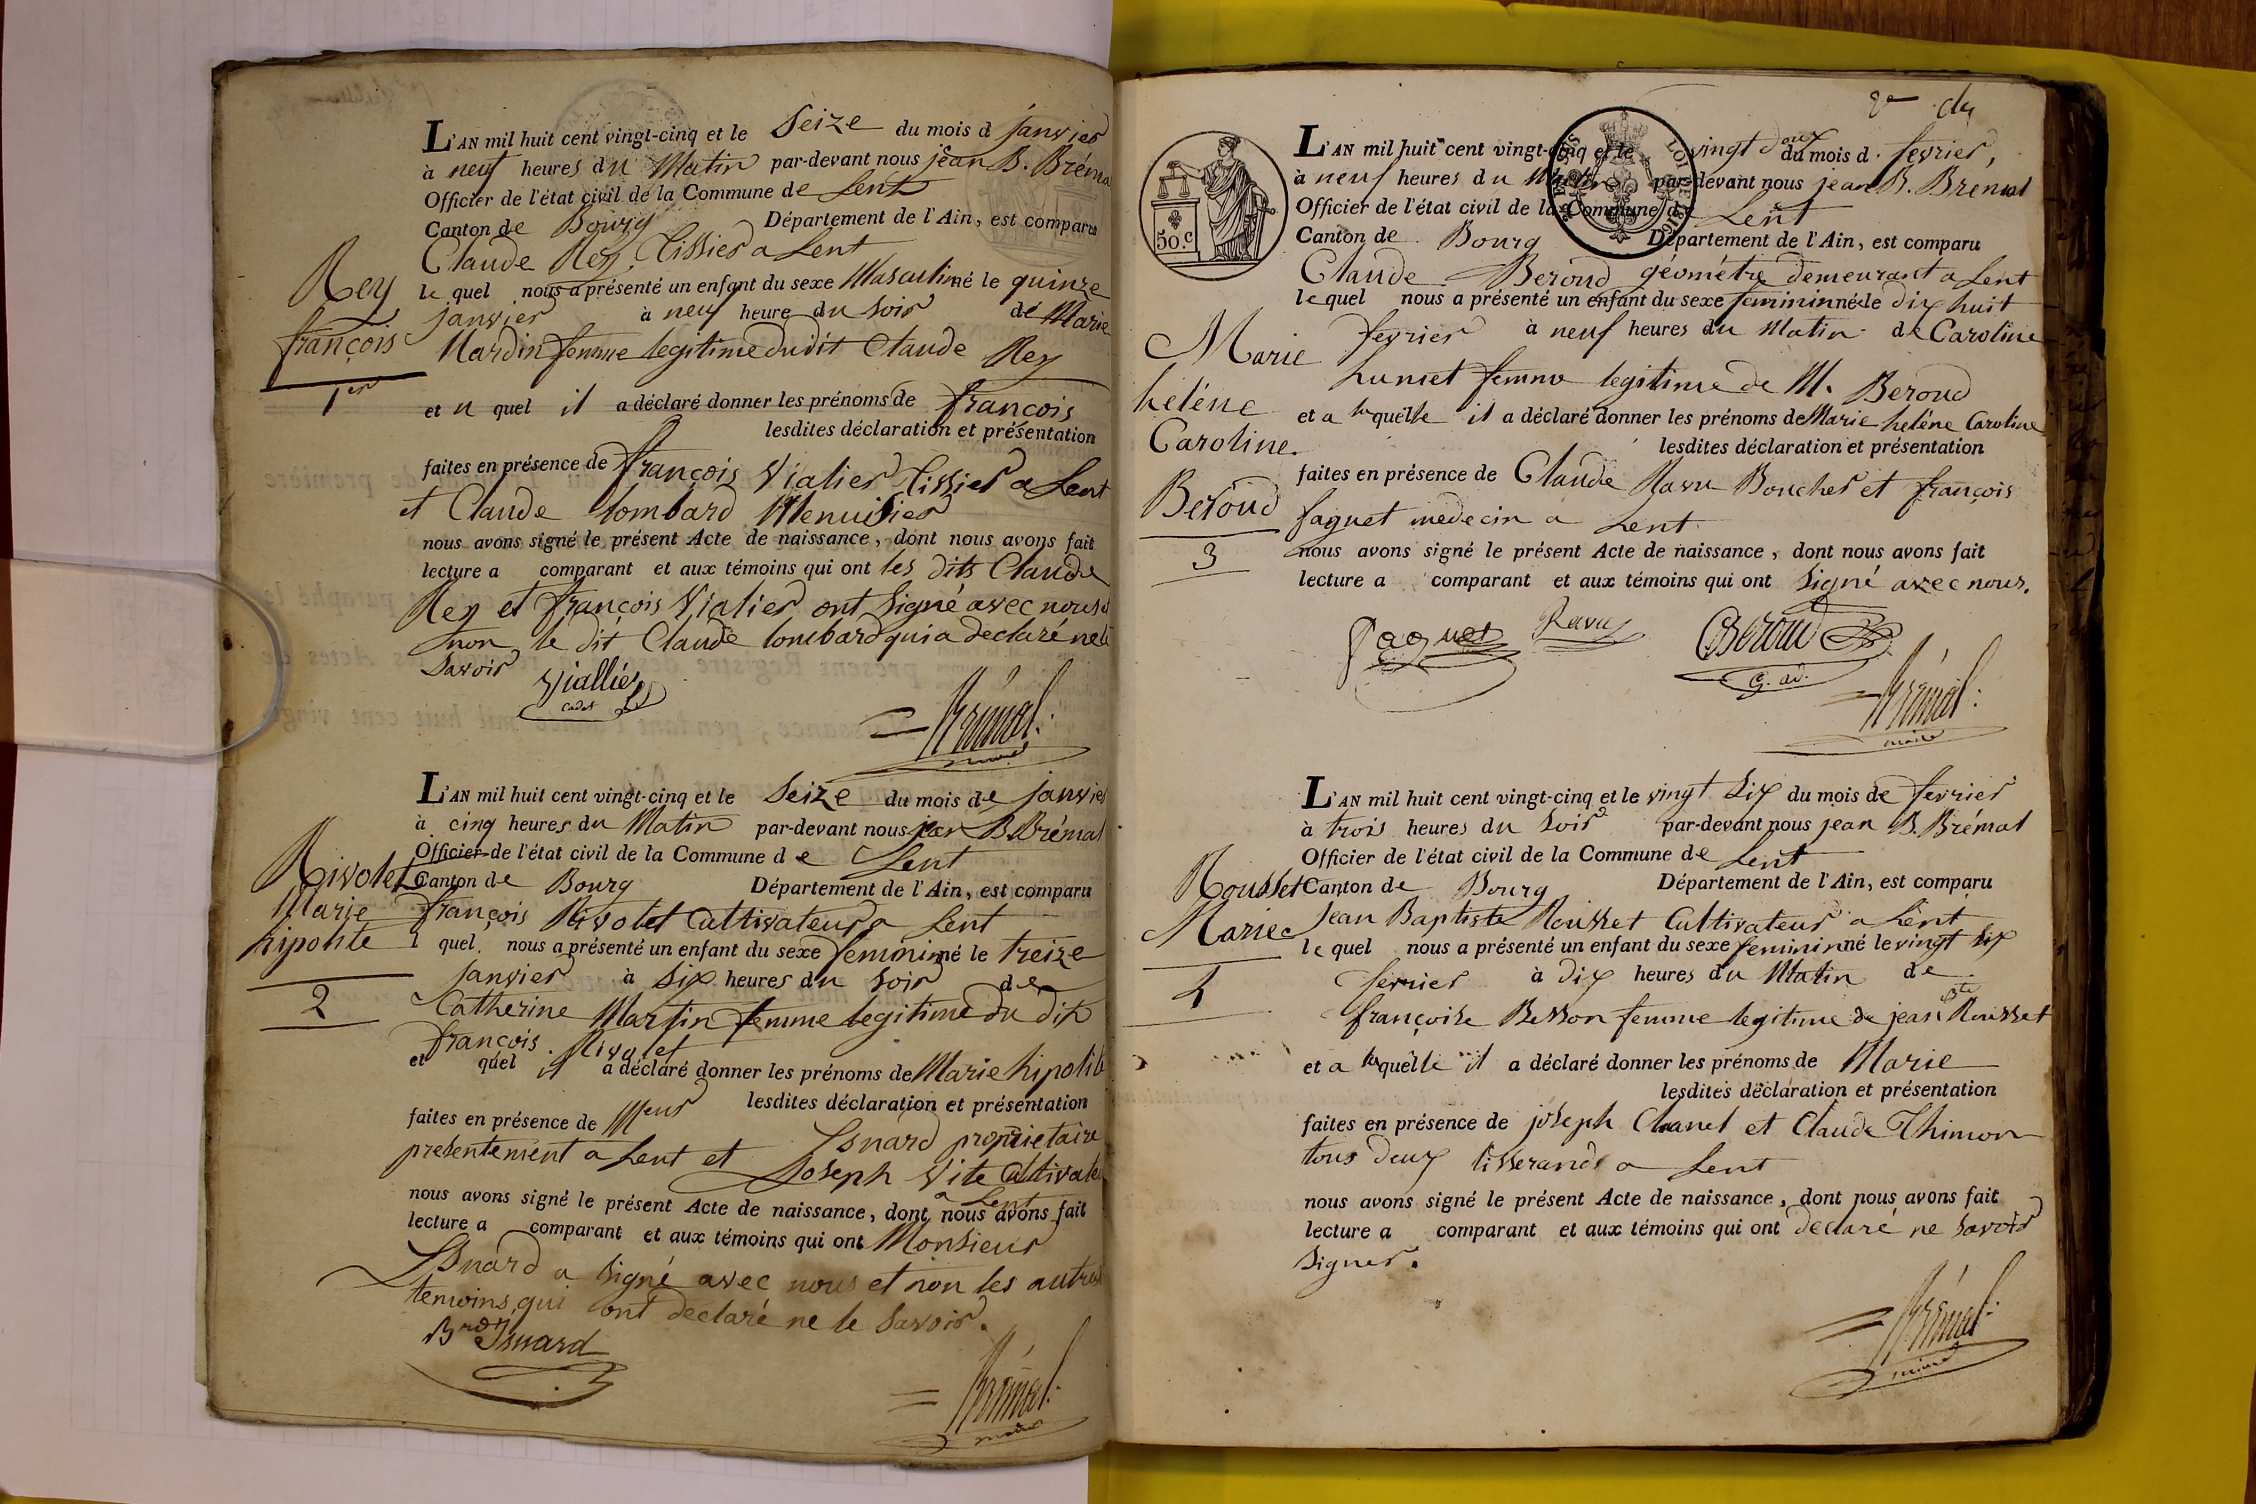 L'AN mil huit cent vingt-cinq et le Seize du mois d janvier
à neuf heures du Matin par-devant nous jean B. Bréma
Officier de l'état civil de la Commune de Lent
Canton de Bourg Département de l'Ain, est comparu
Claude Rey, tissier a Lent
le quel nous a présenté un enfant du sexe Masculin né le quinze
janvier à neuf heure du soir de Marie
Nardin femme legitime dudit Claude Rey
Rey
françois
1er
et u quel il a déclaré donner les prénoms de françois
lesdites déclaration et présentation
faites en présence de françois Vialier tissier a Lent
et Claude lombard Menuisier
nous avons signé le présent Acte de naissance, dont nous avons fait
lecture a comparant et aux témoins qui ont les dits Claude
Rey et françois Vialier ont signé avec nous et
non le dit Claude lombard qui a declaré ne le
savoir
Viallier
cadet
Brémal
maire
L'AN mil huit cent vingt-cinq et le Seize du mois de janvier
à cinq heures du Matin par-devant nous jean B. Brémal
Officier de l'état civil de la Commune de Lent
Canton de Bourg Département de l'Ain, est comparu
françois Rivolet Cultivateur a Lent
l quel nous a présenté un enfant du sexe feminin né le treize
janvier à six heures du soir de
Catherine Martin femme legitime du dit
françois Rivolet
Rivolet
Marie
hipolite
2
et quel il a déclaré donner les prénoms de Marie hipolite
lesdites déclaration et présentation
faites en présence de Meur Isnard proprietaire
presentement a Lent et Joseph Vite Cultivate
a Lent
nous avons signé le présent Acte de naissance, dont nous avons fait
lecture a comparant et aux témoins qui ont Monsieur
Isnard a signé avec nous et non les autres
temoins qui ont declaré ne le savoir.
Isnard
Brémal
maire
2e
50.c
L'AN mil huit cent vingt-cinq et le vingt deux du mois d. fevrier,
à neuf heures du Matin par-devant nous jean B. Bremal
Officier de l'état civil de la Commune de Lent
Canton de Bourg Département de l'Ain, est comparu
Claude Beroud géométre demeurant a Lent
le quel nous a présenté un enfant du sexe feminin née le dix huit
fevrier à neuf heures du Matin de Caroline
femme legitime de M. Beroud
Marie
heléne
Caroline.
Beroud
3
et a laquelle il a déclaré donner les prénoms de Marie heléne Caroline
lesdites déclaration et présentation
faites en présence de Claude Ravu Boucher et françois
faguet medecin a Lent
nous avons signé le présent Acte de naissance, dont nous avons fait
lecture a comparant et aux témoins qui ont signé avec nous.
faguet Ravu Beroud
Brémal
maire
L'AN mil huit cent vingt-cinq et le vingt six du mois de fevrier
à trois heures du soir par-devant nous jean B. Brémal
Officier de l'état civil de la Commune de Lent
Canton de Bourg Département de l'Ain, est comparu
Jean Baptiste Rousset Cultivateur a Lent
le quel nous a présenté un enfant du sexe feminin né le vingt six
fevrier à dix heures du Matin de
françoise Besson femme legitime de jean Bste Rousset
Rousset
Marie
4
et a laquelle il a déclaré donner les prénoms de Marie
lesdites déclaration et présentation
faites en présence de joseph Chanel et Claude Thimon
tous deux tisserands a Lent
nous avons signé le présent Acte de naissance, dont nous avons fait
lecture a comparant et aux témoins qui ont declaré ne savoir
signer.
Brémal
maire